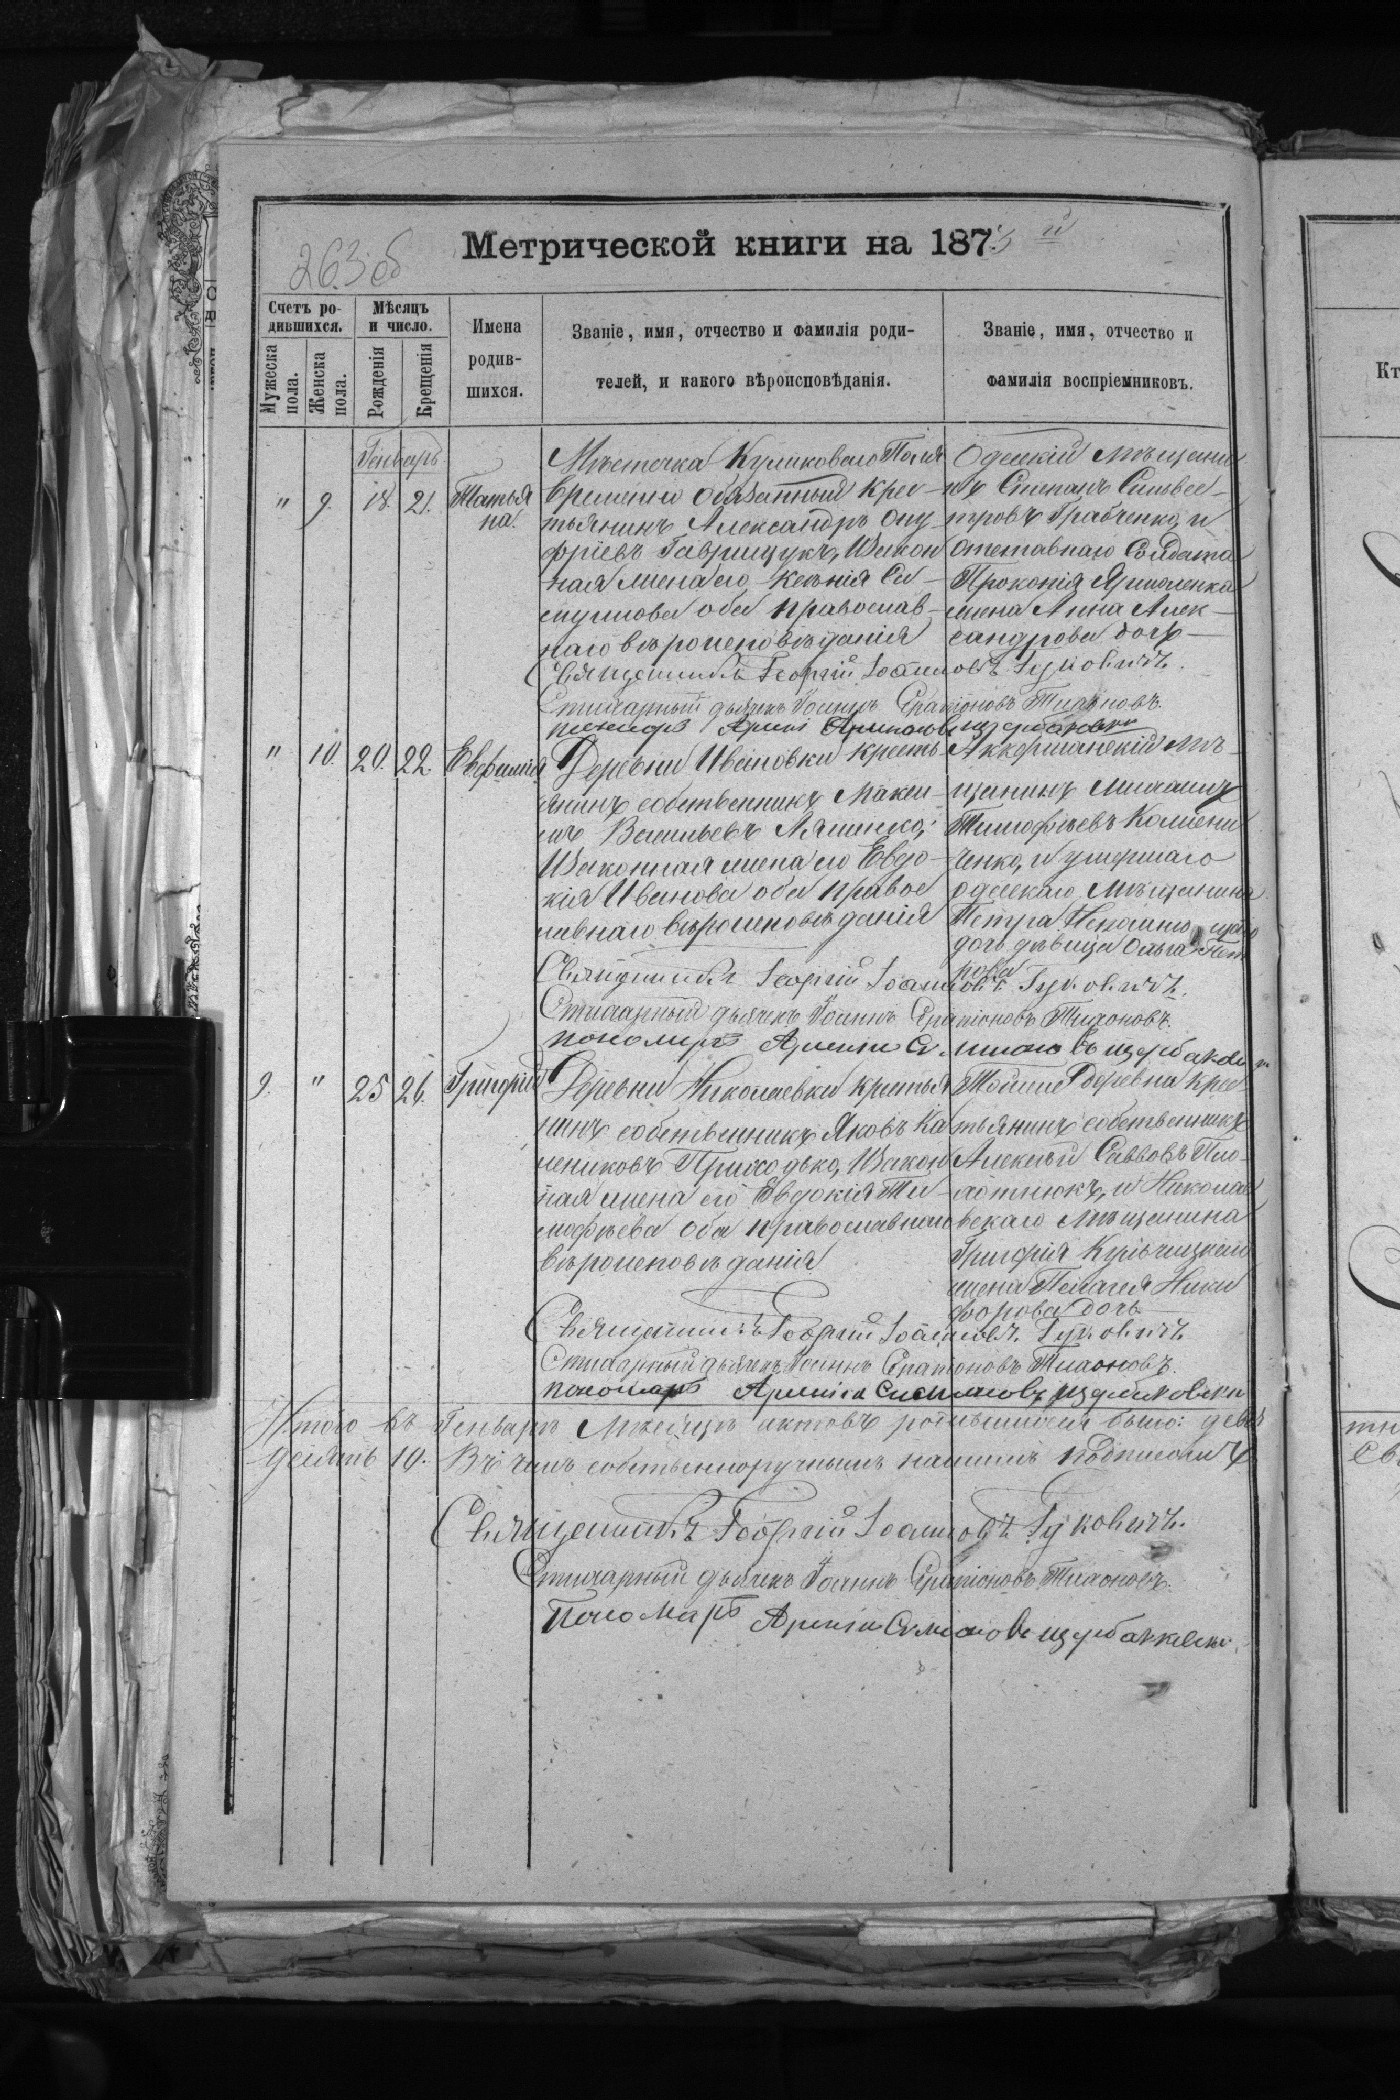 263 об
Метрической книги на 1873 й
Счетъ ро-
дившихся.
Мужеска пола.
Женска пола.
Мѣсяцъ
и число.
Рожденія
Крещенія
Имена
родив-
шихся.
Званіе, имя, отчество и фамилія роди-
телей, и какого вѣроисповѣданія.
Званіе, имя, отчество и
фамилія воспріемниковъ.
Генварь
" 9. 18. 21. Татья
на.
Мѣстечка Куликоваго Поля
Временно обязанный крес-
тьянинъ Александръ Ону-
фріевъ Гаврищукъ, Закон
ная жена его Ксенія
оба православ-
наго вѣроисповѣданія
Одесскій мѣщани
нъ Степанъ Сильвес-
тровъ Грабченко, и
Отставнаго Солдата
Прокопія Ярмоленка
жена Анна Алек-
сандрова дочь
Священникъ Георгій Іоанновъ Гуковичъ.
Стихарный дьячекъ Іоаннъ Тихоновъ.
пономарь
" 10. 20. 22. Евфимія
Деревни Ивановки кресть-
янинъ собственникъ Макси-
мъ Васильевъ
Законная жена его Евдо-
кія Иванова оба правос
лавнаго вѣроисповѣданія
Аккерманскій мѣ-
щанинъ Михаилъ
Тимофѣевъ
ченко, и умершаго
одесскаго мѣщанина
Петра
дочь дѣвица Ольга Пет
рова
Священникъ Георгій Іоанновъ Гуковичъ.
Стихарный дьячекъ Іоаннъ Тихоновъ.
пономарь
9. " 25 26. Григорій
Деревни Николаевки крестья
нинъ собственникъ Яковъ Ка
лениковъ Приходько, Закон
ная жена его Евдокія Ти-
мофѣева оба православнаго
вѣроисповѣданія
Тойже деревни крес
тьянинъ собственникъ
Алексѣй Саввовъ
и Никола
евскаго мѣщанина
Григорія
жена Пелагея Ники
форова дочь
Священникъ Георгій Іоанновъ Гуковичъ.
Стихарный дьячекъ Іоаннъ Тихоновъ.
пономарь
Итого въ Генварѣ Мѣсяцѣ актовъ родившихся было:
10. Въ чемъ собственноручнымъ нашимъ подписомъ
Священникъ Георгій Іоанновъ Гуковичъ.
Стихарный дьячекъ Іоаннъ Тихоновъ.
Пономарь
Кт